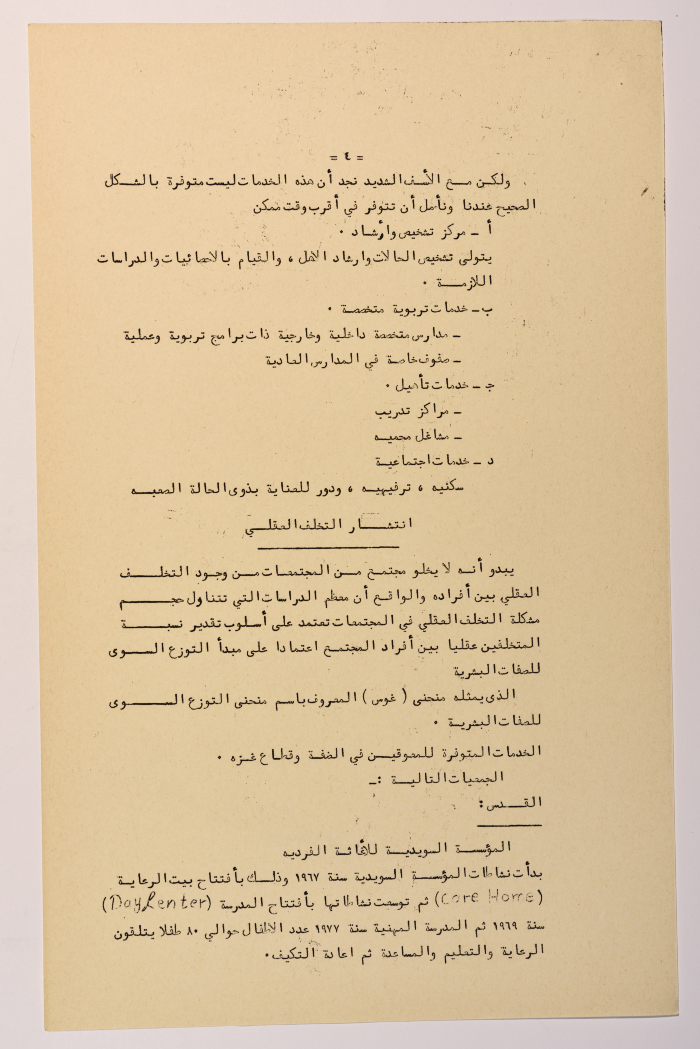 = ٤ =
ولكن مع الأسف الشديد نجد أن هذه الخدمات ليست متوفرة بالشكل
الصحيح عندنا ونأمل أن تتوفر في أقرب وقت ممكن
أ ـ مركز تشخيص وأرشاد ٠
يتولى تشخيص الحالات وارشاد الاهل ، والقيام بالاحصائيات والدراسات
اللازمة ٠
ب ـ خدمات تربوية متخصصة ٠
ـ مدارس متخصصة داخلية وخارجية ذات برامج تربوية وعملية
ـ صفوف خاصة في المدارس العادية
جـ ـ خدمات تأهيل ٠
ـ مراكز تدريب
ـ مشاغل محميه
د ـ خدمات اجتماعية
سكنيه ، ترفيهيه ، ودور للعناية بذوى الحالة الصعبه
انتشار التخلف العقلي
يبدو أنه لا يخلو مجتمع من المجتمعات من وجود التخلف
العقلي بين أفراده والواقع أن معظم الدراسات التي تتناول حجم
مشكلة التخلف العقلي في المجتمعات تعتمد على أسلوب تقدير نسبة
المتخلفين عقليا بين أفراد المجتمع اعتمادا على مبدأ التوزع السوى
للصفات البشرية
الذى يمثله منحنى ( غوس ) المعروف باسم منحنى التوزع السوى
للصفات البشرية ٠
الخدمات المتوفرة للمعوقين في الضفة وقطاع غزه ٠
الجمعيات التالية :ـ
القدس:
المؤسسة السويدية للأغاثة الفرديه
بدأت نشاطات المؤسسة السويدية سنة ١٩٦٧ وذلك بأفتتاح بيت الرعاية
(Care Home) ثم توسعت نشاطاتها بأفتتاح المدرسة (Day Center)
سنة ١٩٦٩ ثم المدرسة المهنية سنة ١٩٧٧ عدد الاطفال حوالي ٨٠ طفلا يتلقون
الرعاية والتعليم والمساعدة ثم اعادة التكيف٠